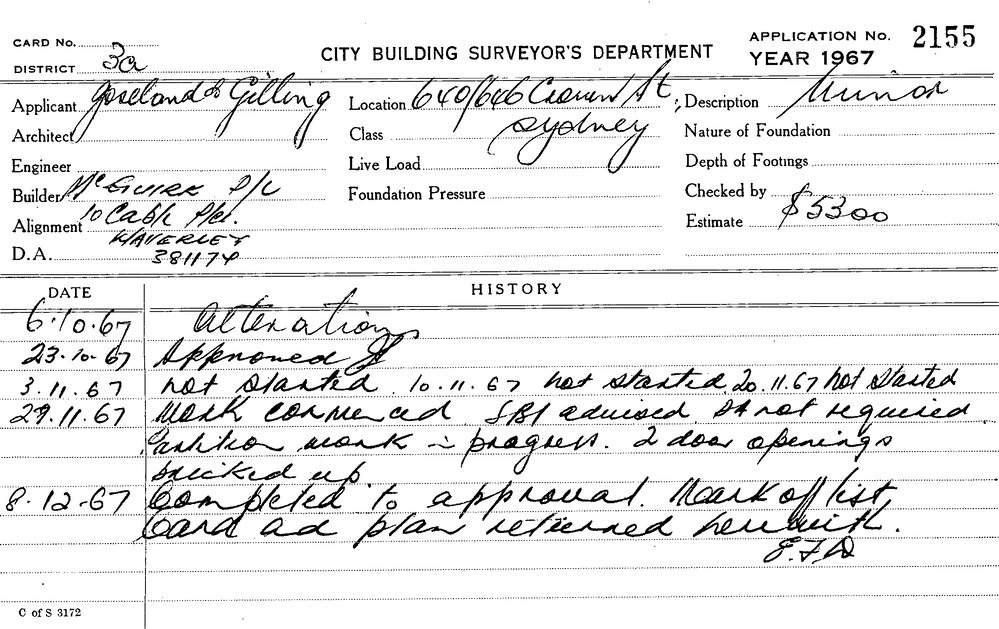 CARD No.
CITY BUILDING SURVEYOR'S DEPARTMENT
APPLICATION No. 2155
DISTRICT 3a
YEAR 1967
Applicant Joseland & Gilling
Location 640/646 Crown St,
Sydney
Description Minor
Architect
Class
Nature of Foundation
Engineer
Live Load
Depth of Footings
Builder McGUIRK P/L
Foundation Pressure
Checked by
Alignment 10 Pl.
WAVERLEY
Estimate $5300
D.A. 381174
DATE
HISTORY
6.10.67 Alterations
23.10.67 Approved
3.11.67 not started 10.11.67 not started 20.11.67 not started
29.11.67 Work commenced advised not required
Partition work in progress. 2 door openings
bricked up.
8.12.67 Completed to approval. Mark off list,
Card ad plan returned herewith.
E.F.D
C of S 3172